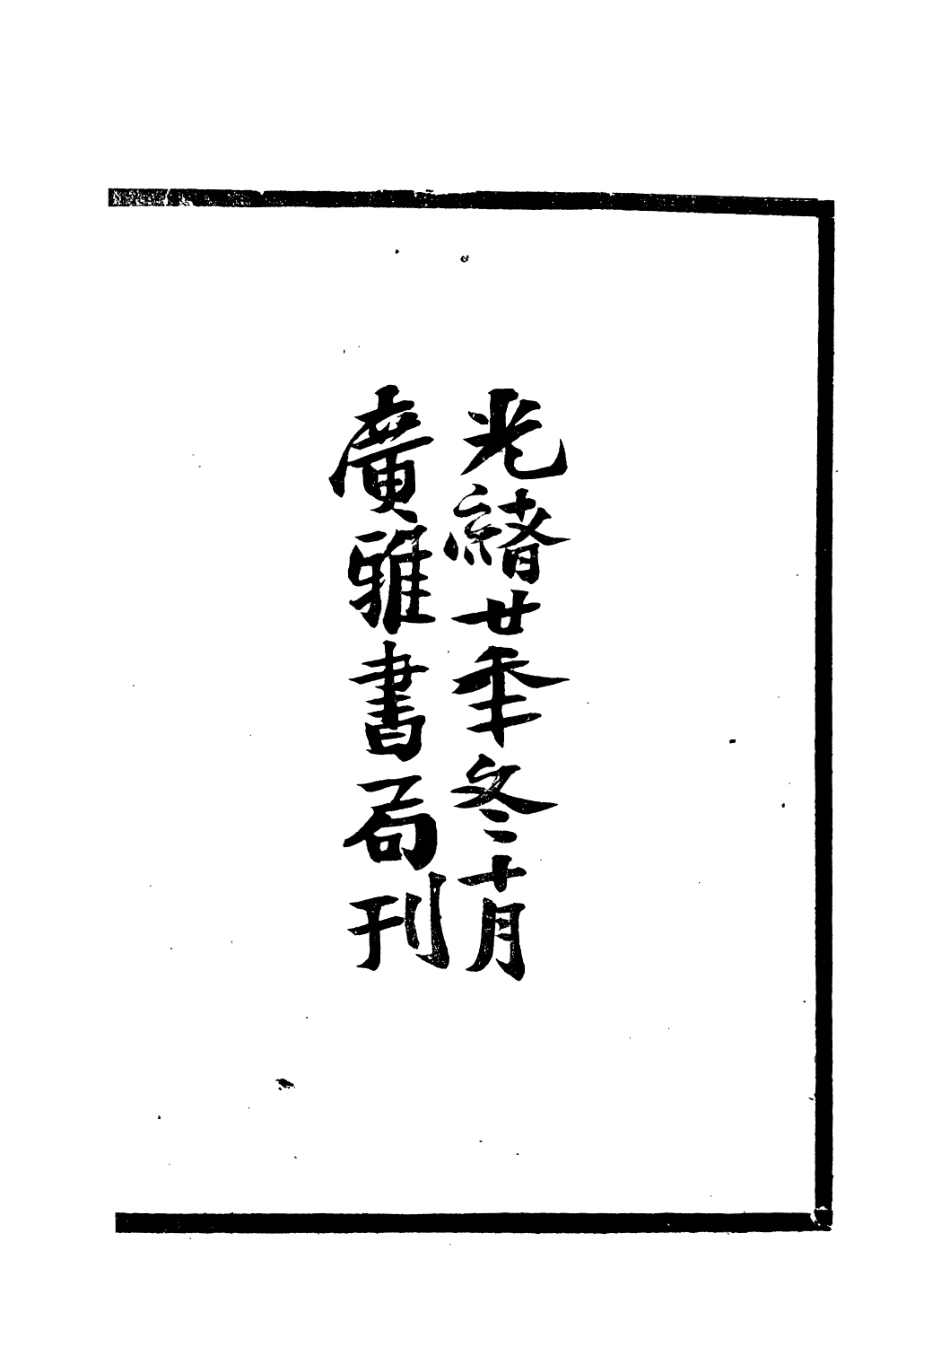 光緒廿年冬十月
廣雅書局刊